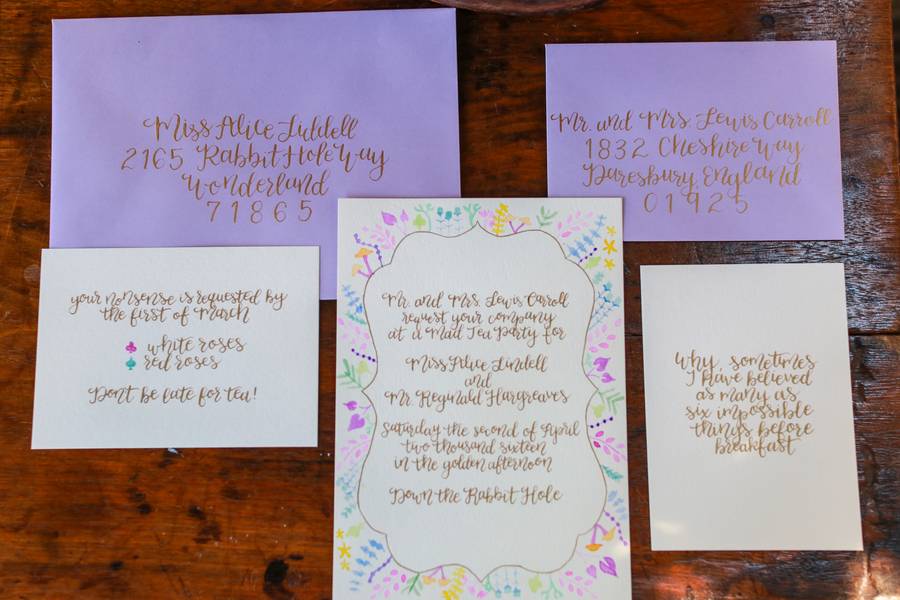 Miss Alice Liddell
2165 Rabbit Hole Way
Wonderland
71865
Mr. and Mrs. Lewis Carroll
1832 Cheshire Way
Daresbury, England
01925
your nonsense is requested by
the first of March
white roses
red roses
Don't be late for tea!
Mr. and Mrs. Lewis Carroll
request your company
at a Mad Tea Party for
Miss Alice Lindell
and
Mr. Reginald Hargreaves
Saturday the second of April
two thousand sixteen
in the golden afternoon
Down the Rabbit Hole
Why, sometimes
I have believed
as many as
six impossible
things before
breakfast